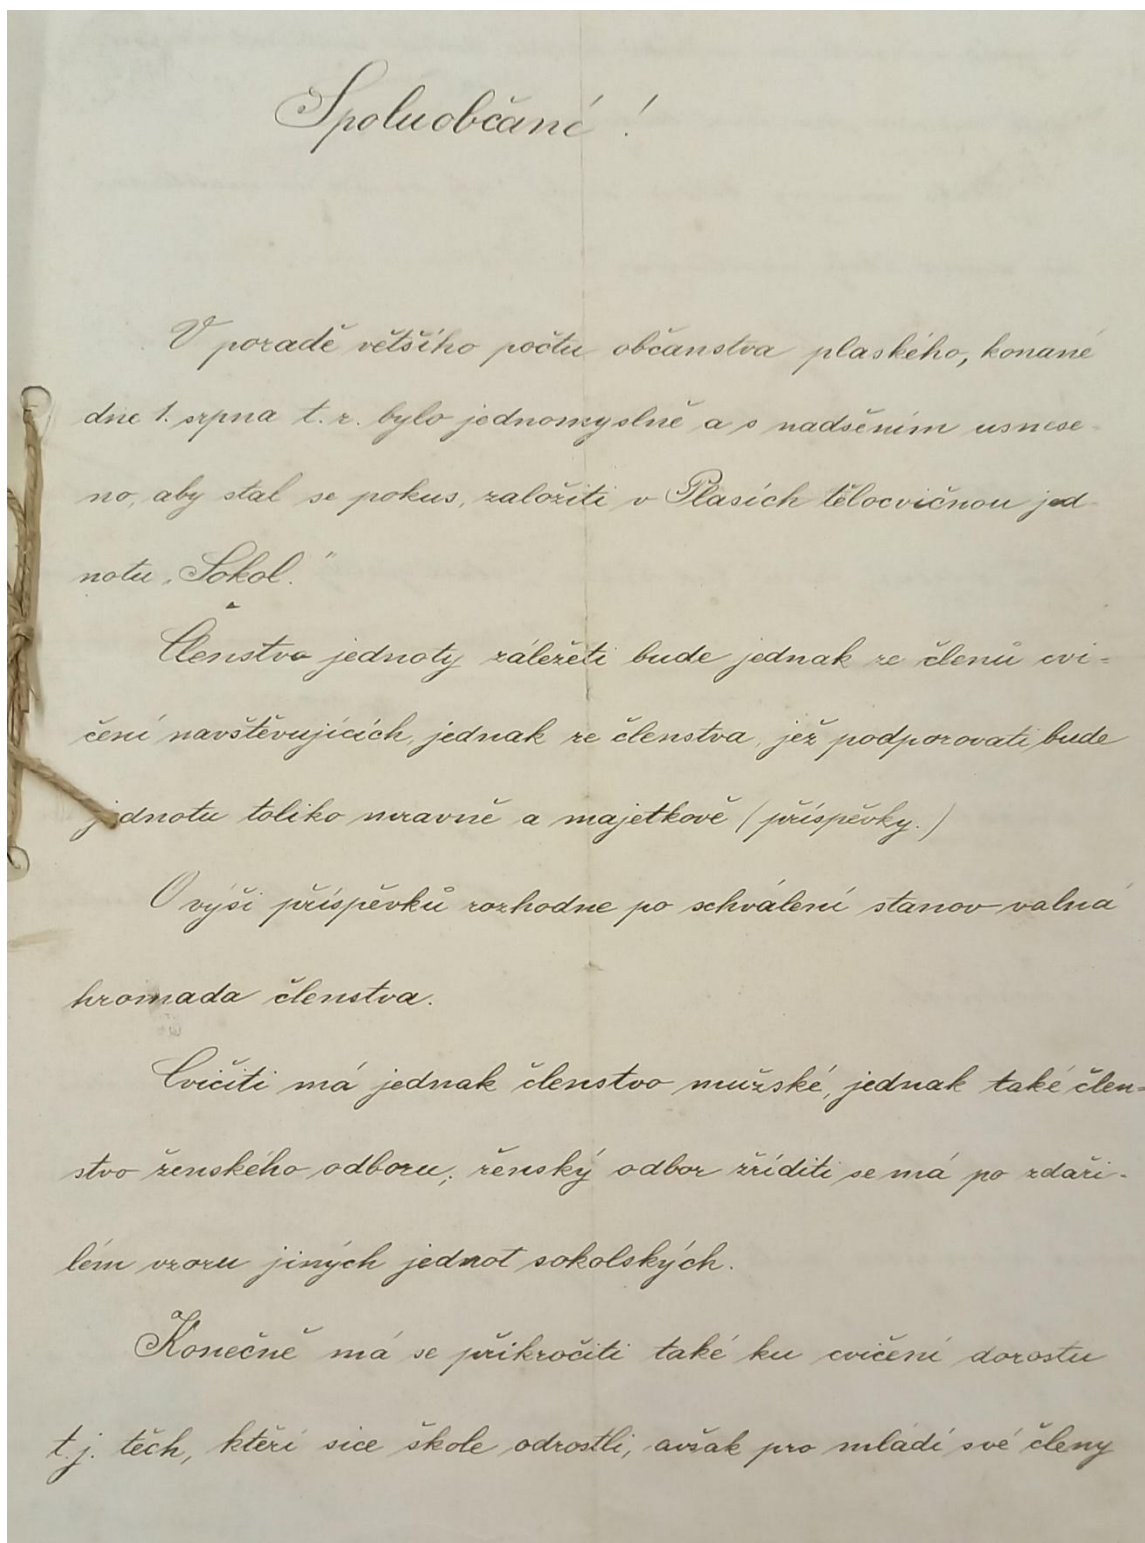 Spoluobčané!
V poradě většího počtu občanstva plaského, konané
dne 1. srpna t. r. bylo jednomyslně a s nadšením usnese-
no, aby stal se pokus, založiti v Plasích tělocvičnou jed-
notu „Sokol.“
Členstvo jednoty záležeti bude jednak ze členů cvi=
čení navštěvujících, jednak ze členstva, jež podporovati bude
jednotu toliko mravně a majetkově (příspěvky.)
O výši příspěvků rozhodne po schválení stanov valná
hromada členstva.
Cvičiti má jednak členstvo mužské, jednak také člen=
stvo ženského odboru; ženský odbor zříditi se má po zdaři-
lém vzoru jiných jednot sokolských.
Konečně má se přikročiti také ku cvičení dorostu
t. j. těch, kteří sice škole odrostli, avšak pro mládí své členy